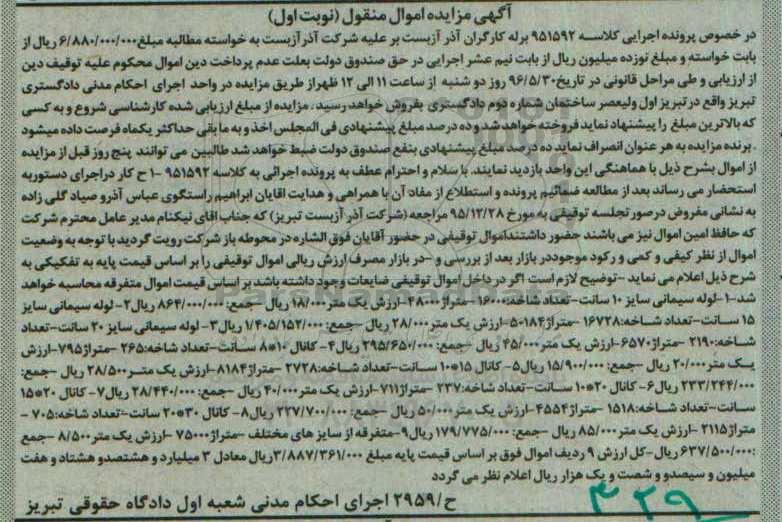 آگهی مزایده اموال منقول (نوبت اول)
در خصوص پرونده اجرایی کلاسه ۹۵۱۵۹۲ برله کارگران آذر آزبست بر علیه شرکت آذر آزبست به خواسته مطالبه مبلغ ۶/۸۸۰/۰۰۰/۰۰۰ ریال از
بابت خواسته و مبلغ نوزده میلیون ریال از بابت نیم عشر اجرایی در حق صندوق دولت بعلت عدم پرداخت دین اموال محکوم علیه توقیف دین
از ارزیابی و طی مراحل قانونی در تاریخ ۹۶/۵/۳۰ روز دو شنبه از ساعت ۱۱ الی ۱۲ ظهر از طریق مزایده در واحد اجرای احکام مدنی دادگستری
تبریز واقع در تبریز اول ولیعصر ساختمان شماره دوم دادگستری بفروش خواهد رسید. مزایده از مبلغ ارزیابی شده کارشناسی شروع و به کسی
که بالاترین مبلغ را پیشنهاد نماید فروخته خواهد شد و ده درصد مبلغ پیشنهادی فی المجلس اخذ و به ما بقی حداکثر یکماه فرصت داده میشود
. برنده مزایده به هر عنوان انصراف نماید ده درصد مبلغ پیشنهادی بنفع صندوق دولت ضبط خواهد شد طالبین می توانند پنج روز قبل از مزایده
از اموال بشرح ذیل با هماهنگی این واحد بازدید نمایند. با سلام و احترام عطف به پرونده اجرائی به کلاسه ۹۵۱۵۹۲ -۱ ح کار در اجرای دستور به
استحضار می رساند بعد از مطالعه ضمائیم پرونده و استطلاع از مفاد آن با همراهی و هدایت اقایان ابراهیم راستگوی عباس آذرو صیاد گلی زاده
به نشانی مفروض در صورتجلسه توقیفی به مورخ ۹۵/۱۲/۲۸ مراجعه (شرکت آذر آزبست تبریز) که جناب اقای نیکنام مدیر عامل محترم شرکت
که حافظ امین اموال نیز می باشند حضور داشتند اموال توقیفی در حضور آقایان فوق الشاره در محوطه باز شرکت رویت گردید با توجه به وضعیت
اموال از نظر کیفی و کمی و رکود موجود در بازار بعد از بررسی و -در بازار مصرف ارزش ریالی اموال توقیفی را بر اساس قیمت پایه به تفکیکی به
شرح ذیل اعلام می نماید -توضیح لازم است اگر در داخل اموال توقیفی ضایعات وجود داشته باشد بر اساس قیمت اموال متفرقه محاسبه خواهد
شد-۱- لوله سیمانی سایز ۱۰ سانت-تعداد شاخه:۱۶۰۰۰ -متراژ ۴۸۰۰۰-ارزش یک متر ۱۸/۰۰۰ ریال -جمع: ۸۶۴/۰۰۰/۰۰۰ ریال۲- لوله سیمانی سایز
۱۵ سانت-تعداد شاخه:۱۶۷۲۸ -متراژ ۵۰۱۸۴-ارزش یک متر ۲۸/۰۰۰ ریال -جمع: ۱/۴۰۵/۱۵۲/۰۰۰ ریال۳- لوله سیمانی سایز ۲۰ سانت-تعداد
شاخه:۲۱۹۰ -متراژ ۶۵۷۰-ارزش یک متر ۴۵/۰۰۰ ریال -جمع: ۲۹۵/۶۵۰/۰۰۰ ریال۴- کانال ۱۰*۸ سانت-تعداد شاخه:۲۶۵ -متراژ ۷۹۵-ارزش
یک متر ۲۰/۰۰۰ ریال -جمع: ۱۵/۹۰۰/۰۰۰ ریال۵- کانال ۱۵*۱۰ سانت-تعداد شاخه:۲۷۲۸ -متراژ ۸۱۸۴-ارزش یک متر ۲۸/۵۰۰ ریال -جمع:
۲۳۳/۲۴۴/۰۰۰ ریال۶- کانال ۲۰*۱۰ سانت-تعداد شاخه:۲۳۷ -متراژ ۷۱۱-ارزش یک متر ۴۰/۰۰۰ ریال -جمع: ۲۸/۴۴۰/۰۰۰ ریال۷- کانال ۲۰*۱۵
سانت-تعداد شاخه:۱۵۱۸ -متراژ ۴۵۵۴-ارزش یک متر ۵۰/۰۰۰ ریال -جمع: ۲۲۷/۷۰۰/۰۰۰ ریال۸- کانال ۳۰*۲۰ سانت-تعداد شاخه:۷۰۵ -
متراژ ۲۱۱۵ -ارزش یک متر ۸۵/۰۰۰ ریال -جمع: ۱۷۹/۷۷۵/۰۰۰ ریال۹-متفرقه از سایز های مختلف -متراژ ۷۵۰۰۰ -ارزش یک متر ۸/۵۰۰ -جمع
:۶۳۷/۵۰۰/۰۰۰ ریال-کل ارزش ۹ ردیف اموال فوق بر اساس قیمت پایه مبلغ ۳/۸۸۷/۳۶۱/۰۰۰ ریال معادل ۳ میلیارد و هشتصدو هشتاد و هفت
میلیون و سیصدو و شصت و یک هزار ریال اعلام نظر می گردد
ح/۲۹۵۹ اجرای احکام مدنی شعبه اول دادگاه حقوقی تبریز
۳۲۹